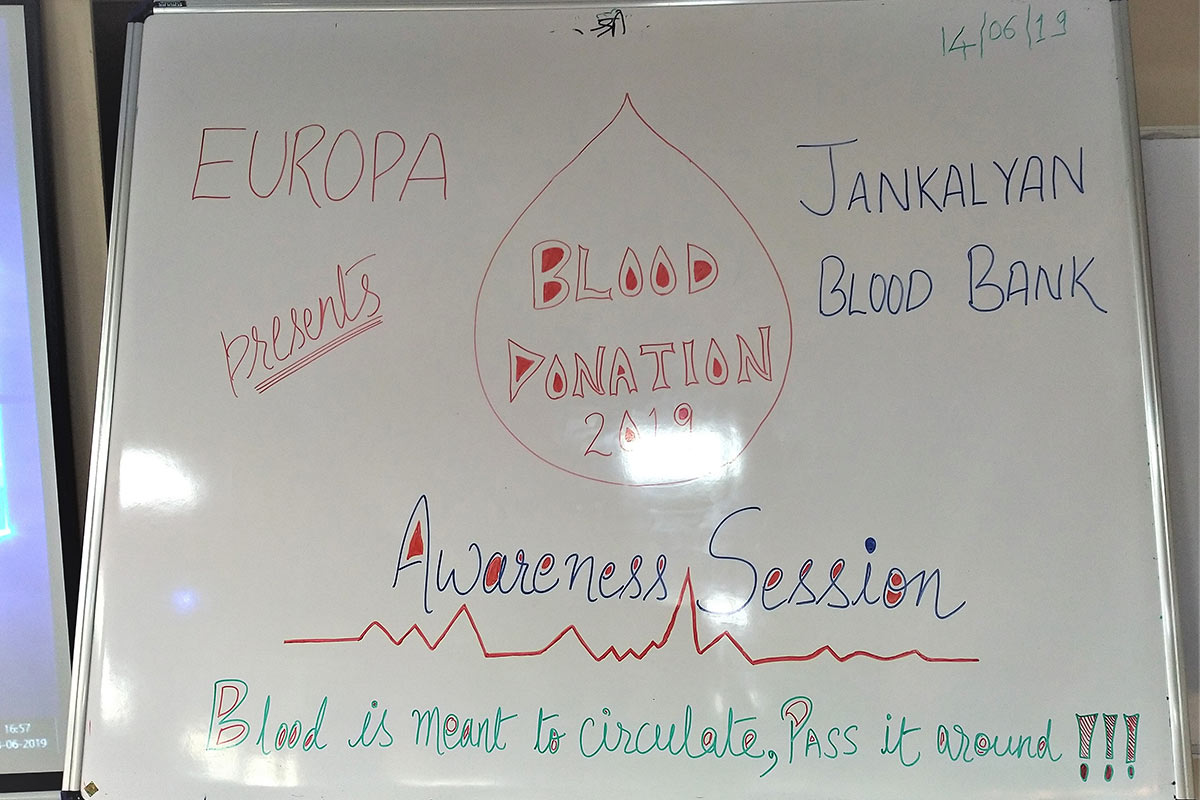 श्री
14/06/19
EUROPA
presents
BLOOD
DONATION
2019
JANKALYAN
BLOOD BANK
Awareness Session
Blood is meant to circulate, PASS it around !!!
16:57
-06-2019